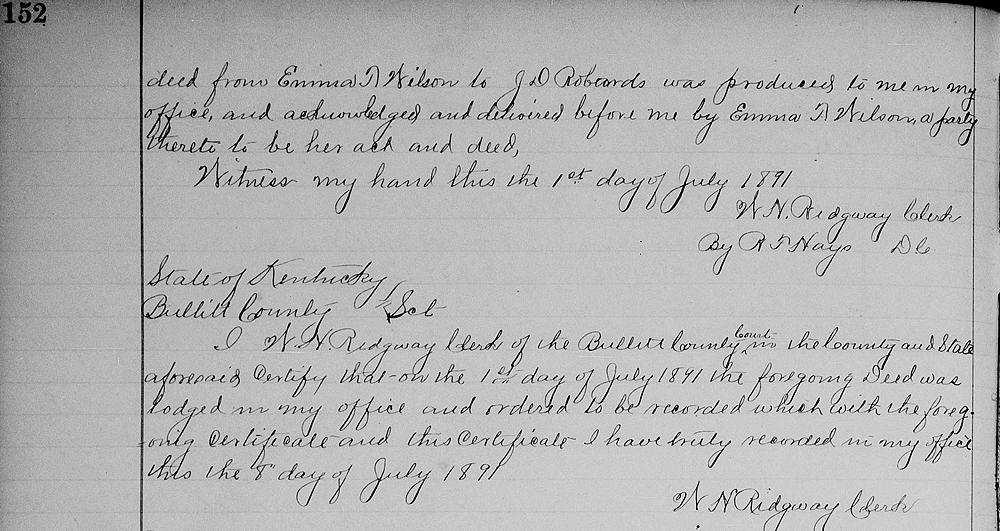 152
deed from Emma T Wilson to J D Robards was produced to me in my
office, and acknowledged and delivired before me by Emma T Wilson, a party
thereto to be her act and deed,
Witness my hand this the 1st day of July 1891
W. N. Ridgway Clerk
By R F Hays D C
State of Kentucky
Bullitt County Sct
I W. N Ridgway Clerk of the Bullitt County Court in the County and State
aforesaid Certify that on the 1st day of July 1891 the foregoing Deed was
lodged in my office and ordered to be recorded which with the foreg-
-oing Certificate and this Certificate I have truly recorded in my office
this the 8" day of July 1891
W N Ridgway Clerk